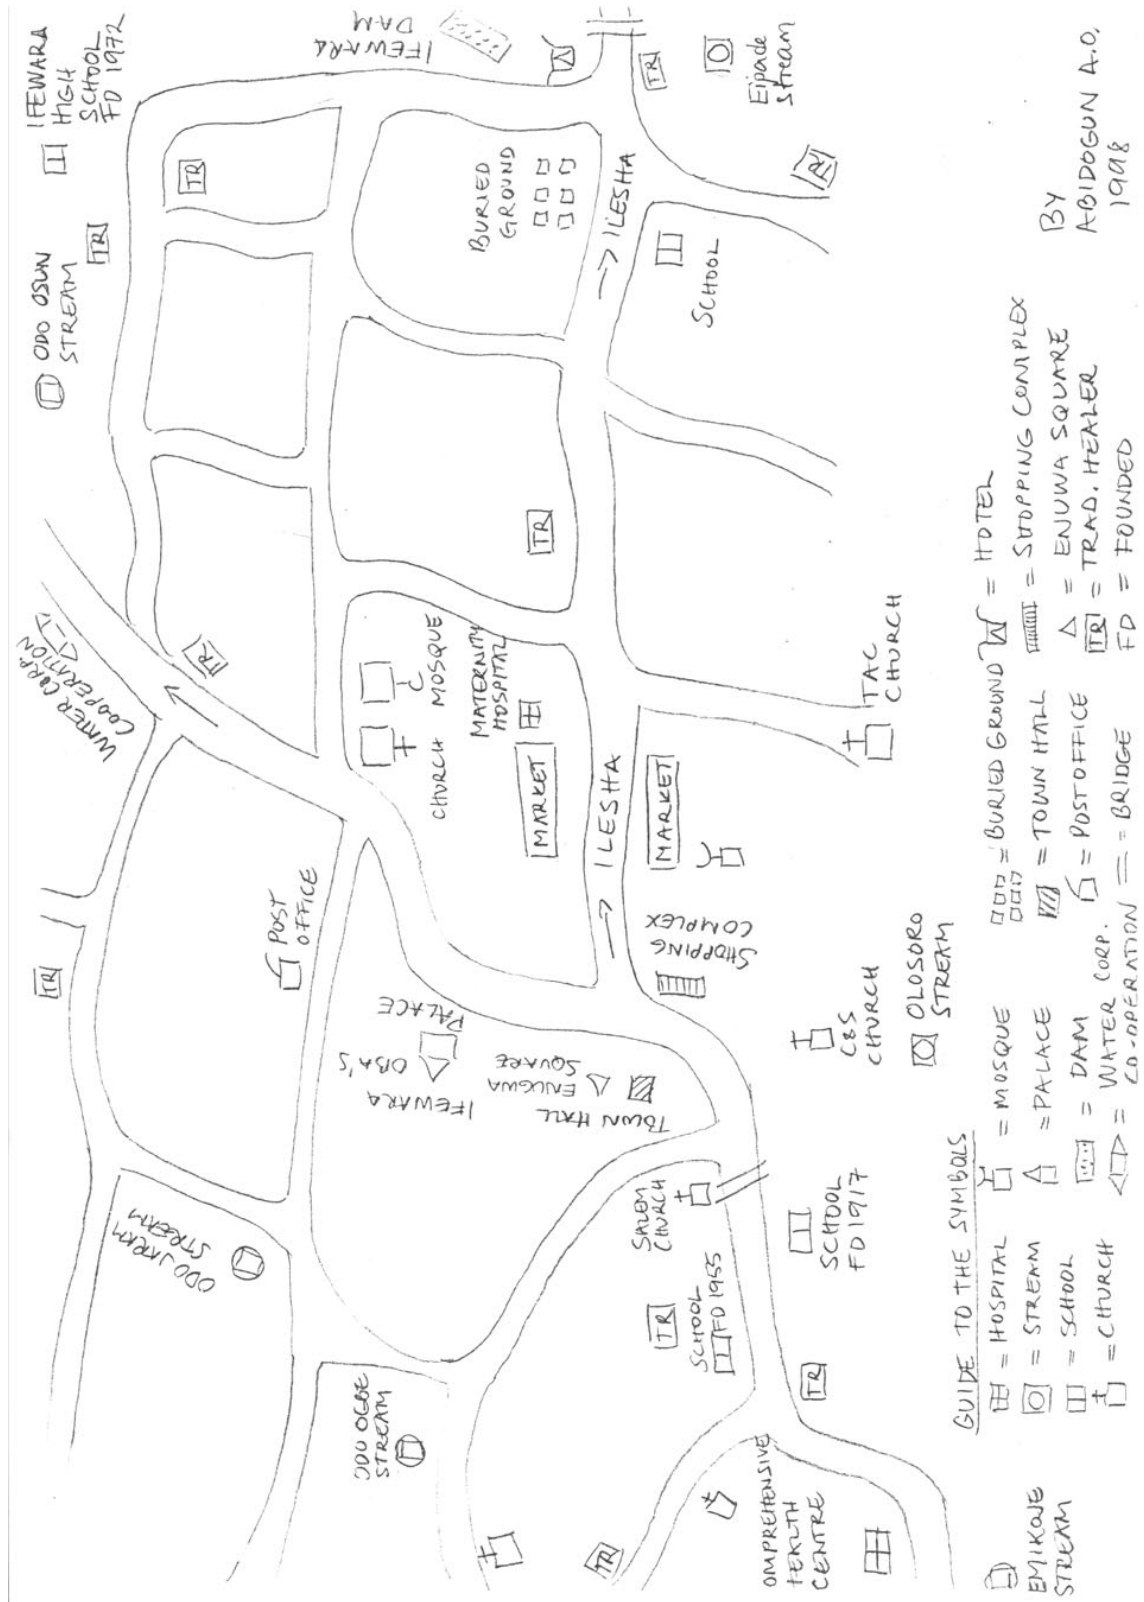 IFEWARA
HIGH
SCHOOL
FD 1972
ODO OSUN
STREAM
TR
TR
IFEWARA
DAM
TR
Eipade
Stream
TR
BURIED
GROUND
→ ILESHA
SCHOOL
WATER CORP.
COOPERATION
TR
TR
CHURCH
MOSQUE
MATERNITY
HOSPITAL
MARKET
→ ILESHA
MARKET
TAC
CHURCH
TR
POST
OFFICE
IFEWARA OBA'S
PALACE
ENUGWA
SQUARE
TOWN HALL
SHOPPING
COMPLEX
C&S
CHURCH
OLOSORO
STREAM
STREAM
ODO OGBE
STREAM
SALEM
CHURCH
TR
SCHOOL
FD 1955
SCHOOL
FD 1917
TR
TR
OMPREHENSIVE
HEALTH
CENTRE
EMIKOJE
STREAM
GUIDE TO THE SYMBOLS
= HOSPITAL
= STREAM
= SCHOOL
= CHURCH
= MOSQUE
= PALACE
= DAM
= WATER CORP.
CO-OPERATION
= BURIED GROUND
= TOWN HALL
= POST OFFICE
= BRIDGE
= HOTEL
= SHOPPING COMPLEX
= ENUWA SQUARE
TR = TRAD. HEALER
FD = FOUNDED
BY
ABIDOGUN A.O,
1998